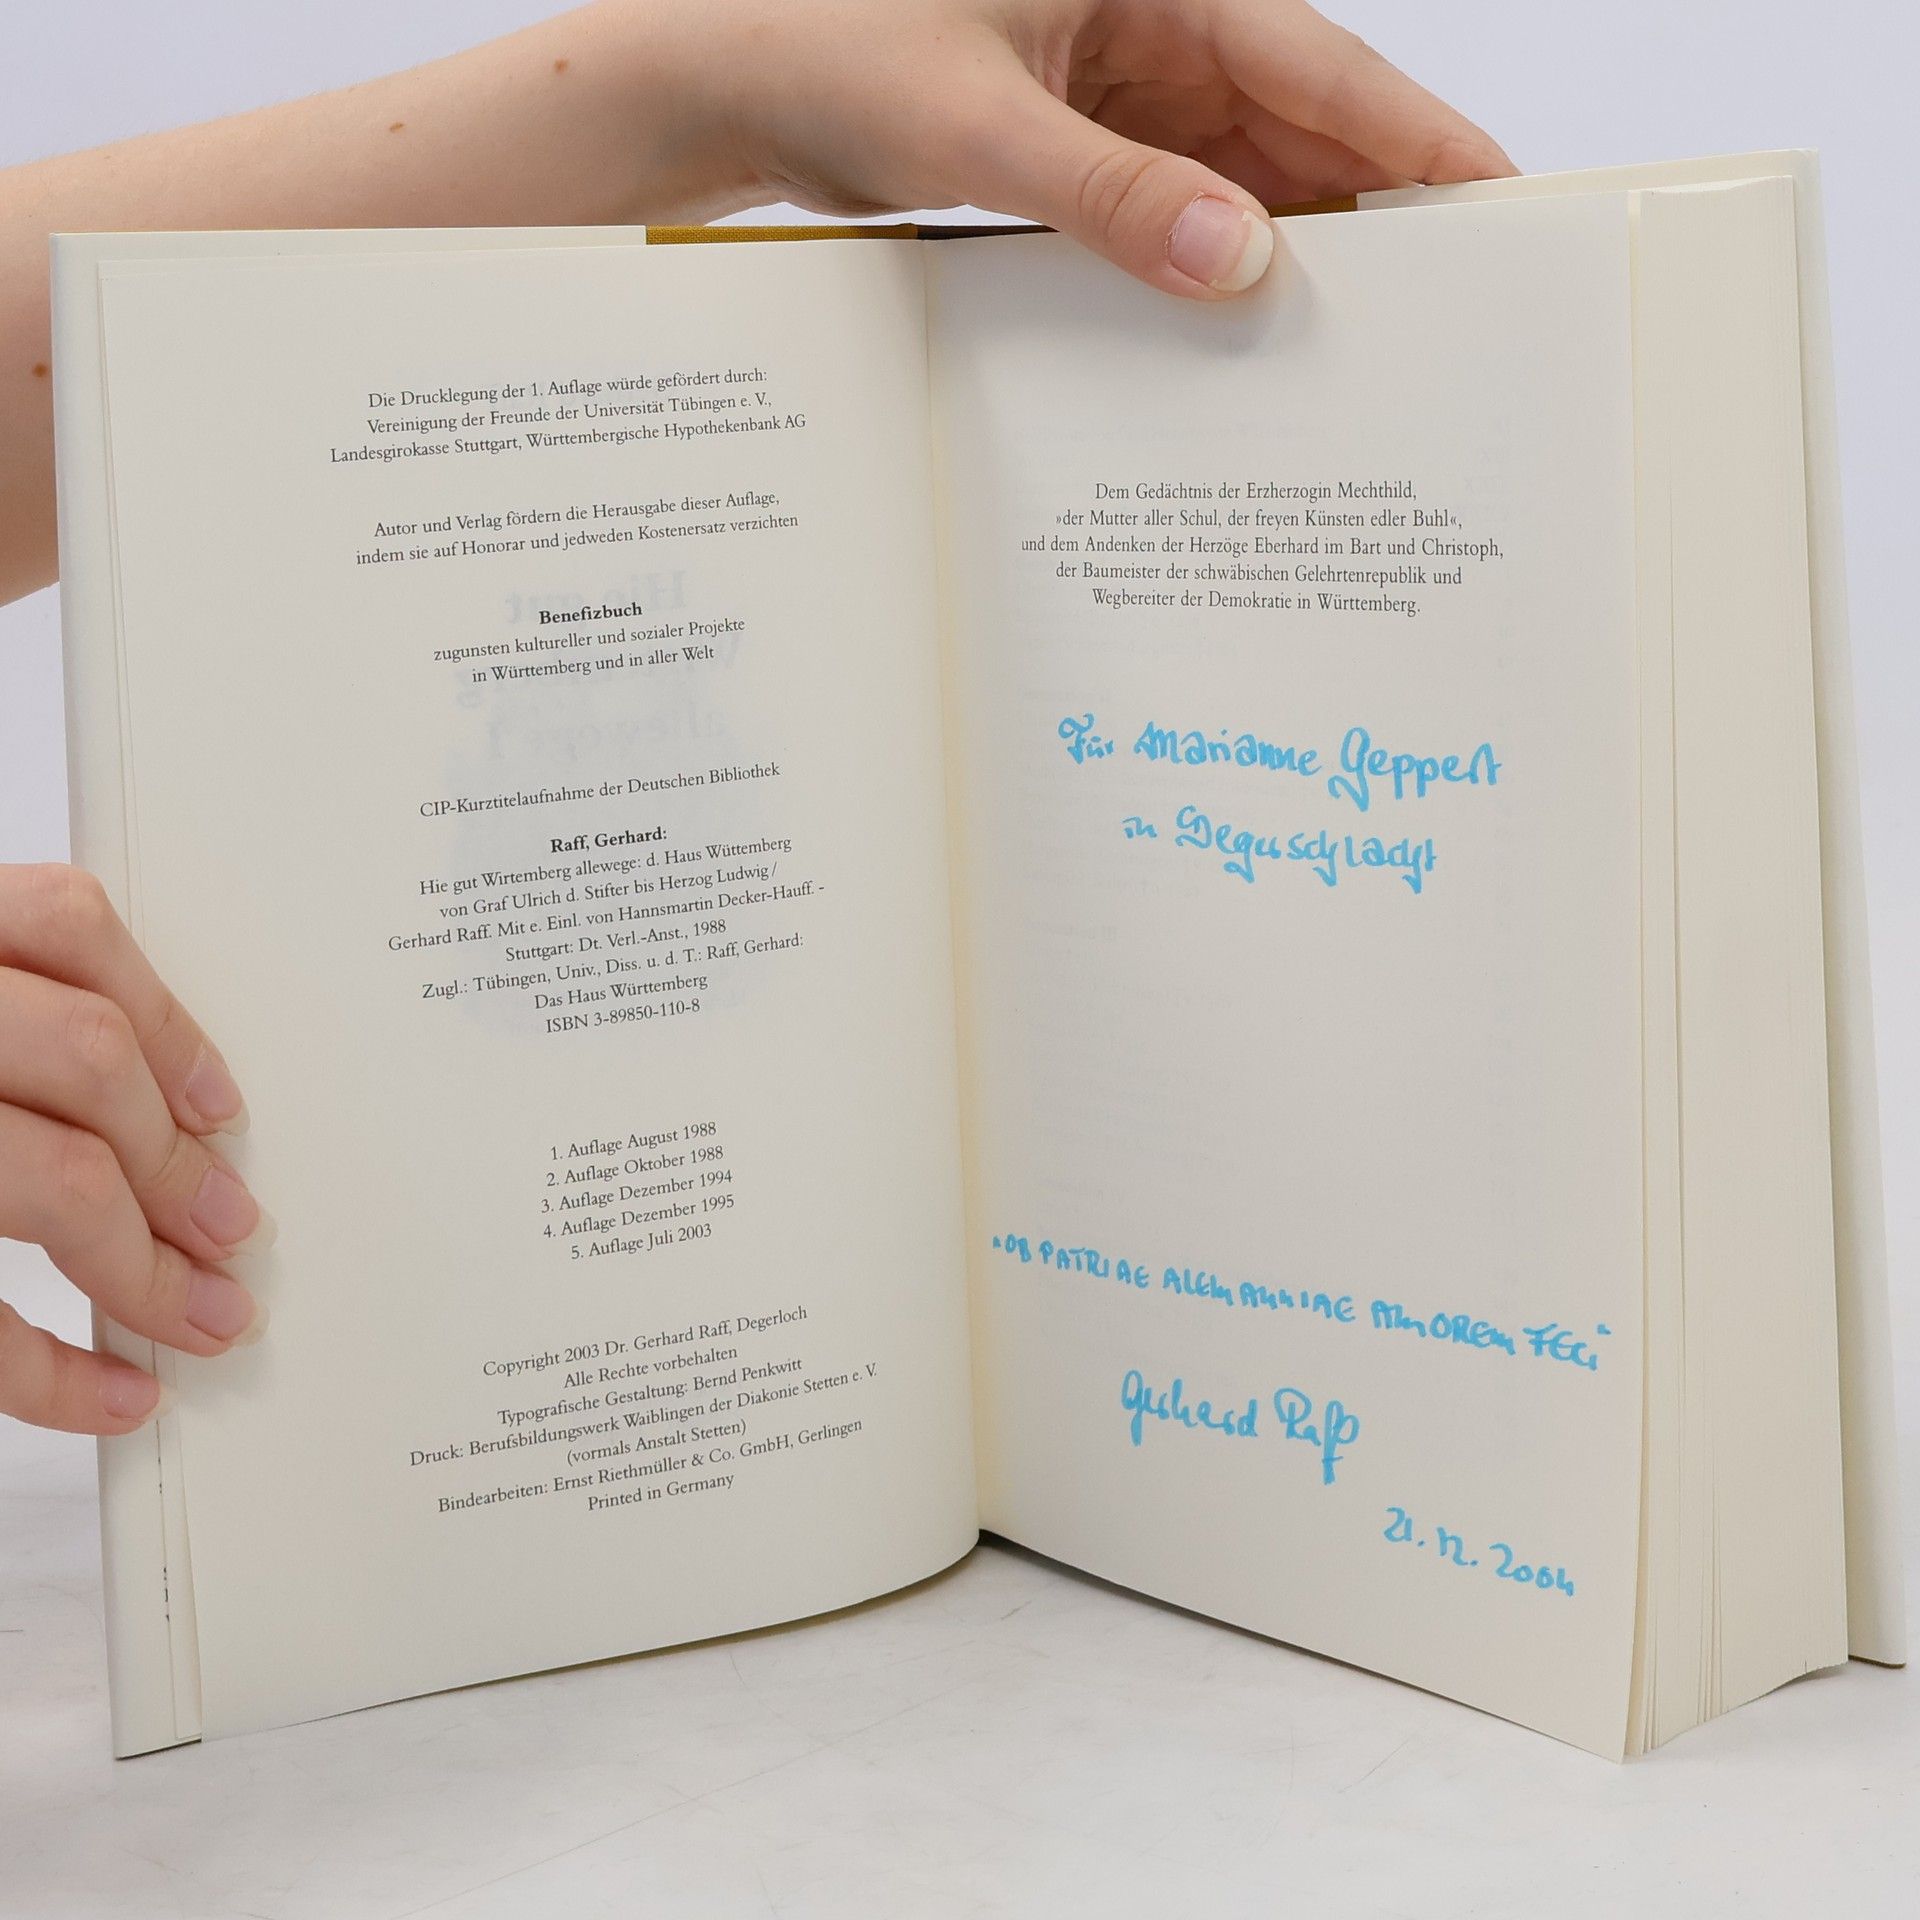 Die Drucklegung der 1. Auflage würde gefördert durch:
Vereinigung der Freunde der Universität Tübingen e. V.,
Landesgirokasse Stuttgart, Württembergische Hypothekenbank AG
Autor und Verlag fördern die Herausgabe dieser Auflage,
indem sie auf Honorar und jedweden Kostenersatz verzichten
Benefizbuch
zugunsten kultureller und sozialer Projekte
in Württemberg und in aller Welt
CIP-Kurztitelaufnahme der Deutschen Bibliothek
Raff, Gerhard:
Hie gut Wirtemberg allewege: d. Haus Wüttemberg
von Graf Ulrich d. Stifter bis Herzog Ludwig /
Gerhard Raff. Mit e. Einl. von Hannsmartin Decker-Hauff. -
Stuttgart: Dt. Verl.-Anst., 1988
Zugl.: Tübingen, Univ., Diss. u. d. T.: Raff, Gerhard:
Das Haus Württemberg
ISBN 3-89850-110-8
1. Auflage August 1988
2. Auflage Oktober 1988
3. Auflage Dezember 1994
4. Auflage Dezember 1995
5. Auflage Juli 2003
Copyright 2003 Dr. Gerhard Raff, Degerloch
Alle Rechte vorbehalten
Typografische Gestaltung: Bernd Penkwitt
Druck: Berufsbildungswerk Waiblingen der Diakonie Stetten e. V.
(vormals Anstalt Stetten)
Bindearbeiten: Ernst Riethmüller & Co. GmbH, Gerlingen
Printed in Germany
Dem Gedächtnis der Erzherzogin Mechthild,
»der Mutter aller Schul, der freyen Künsten edler Buhl«,
und dem Andenken der Herzöge Eberhard im Bart und Christoph,
der Baumeister der schwäbischen Gelehrtenrepublik und
Wegbereiter der Demokratie in Württemberg.
Für Marianne Geppert
in Degerschlacht
"OB PATRIAE ALEMANNIAE AMOREM FECI"
Gerhard Raff
21. 12. 2004